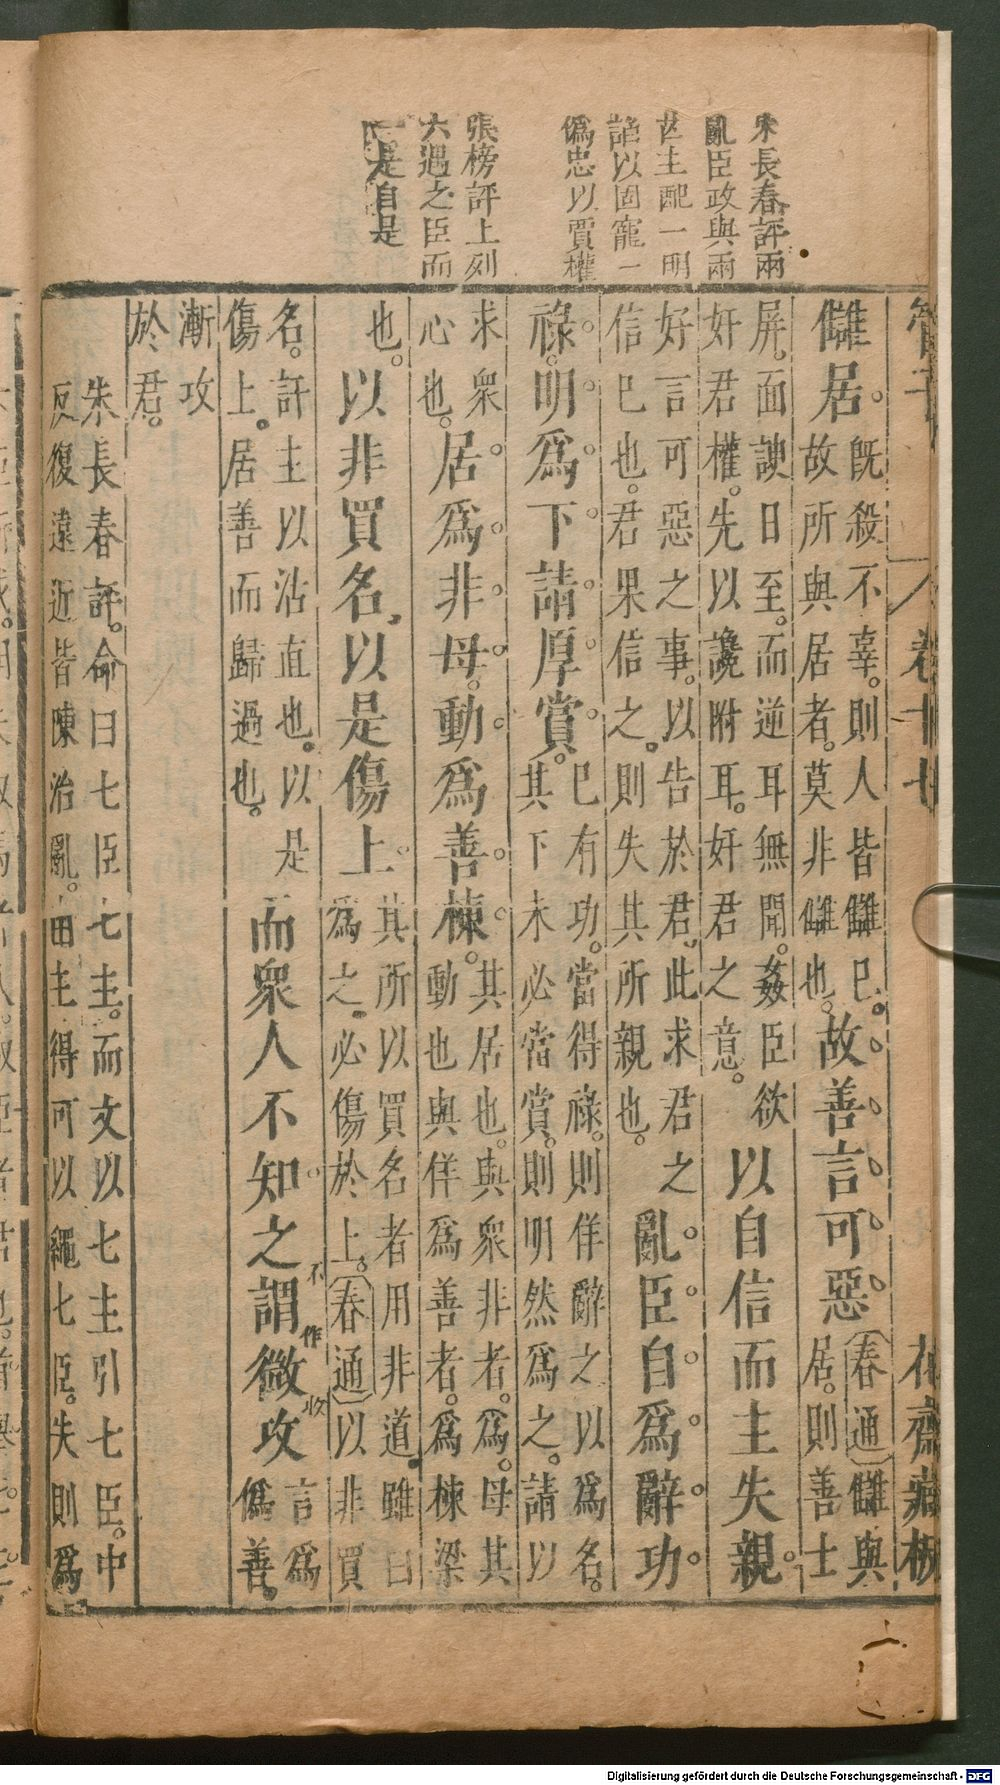 朱長春評兩
亂臣政與兩
芒主配一明
諂以固寵一
偽忠以賈權
張榜評上列
六遇之臣而
一是自是
管子 卷十七 花齋藏板
讎居。既殺不辜。則人皆讎已。故所與居者。莫非讎也。故善言可惡〔春通〕讎與居。則善士
屏。面諛日至。而逆耳無聞。姦臣欲奸君權。先以讒附耳。奸君之意。以自信而主失親。
好言可惡之事。以告於君。此求君之信已也。君果信之。則失其所親也。亂臣自爲辭功
祿。明爲下請厚賞。已有功。當得祿。則佯辭之以爲名。其下未必當賞。則明然爲之。請以
求衆心也。居爲非母。動爲善棟。其居也。與衆非者。爲母其動也與佯爲善者。爲棟梁
也。以非買名。以是傷上。其所以買名者用非道。雖曰爲之。必傷於上。〔春通〕以非買
名。訐主以沽直也。以是傷上。居善而歸過也。而衆人不知之謂微攻言爲偽善。
不作收
漸攻於君。
朱長春評。命曰七臣七主。而文以七主引七臣。中
反復遠近皆陳治亂。由主得可以繩七臣。失則爲
Digitalisierung gefördert durch die Deutsche Forschungsgemeinschaft - DFG